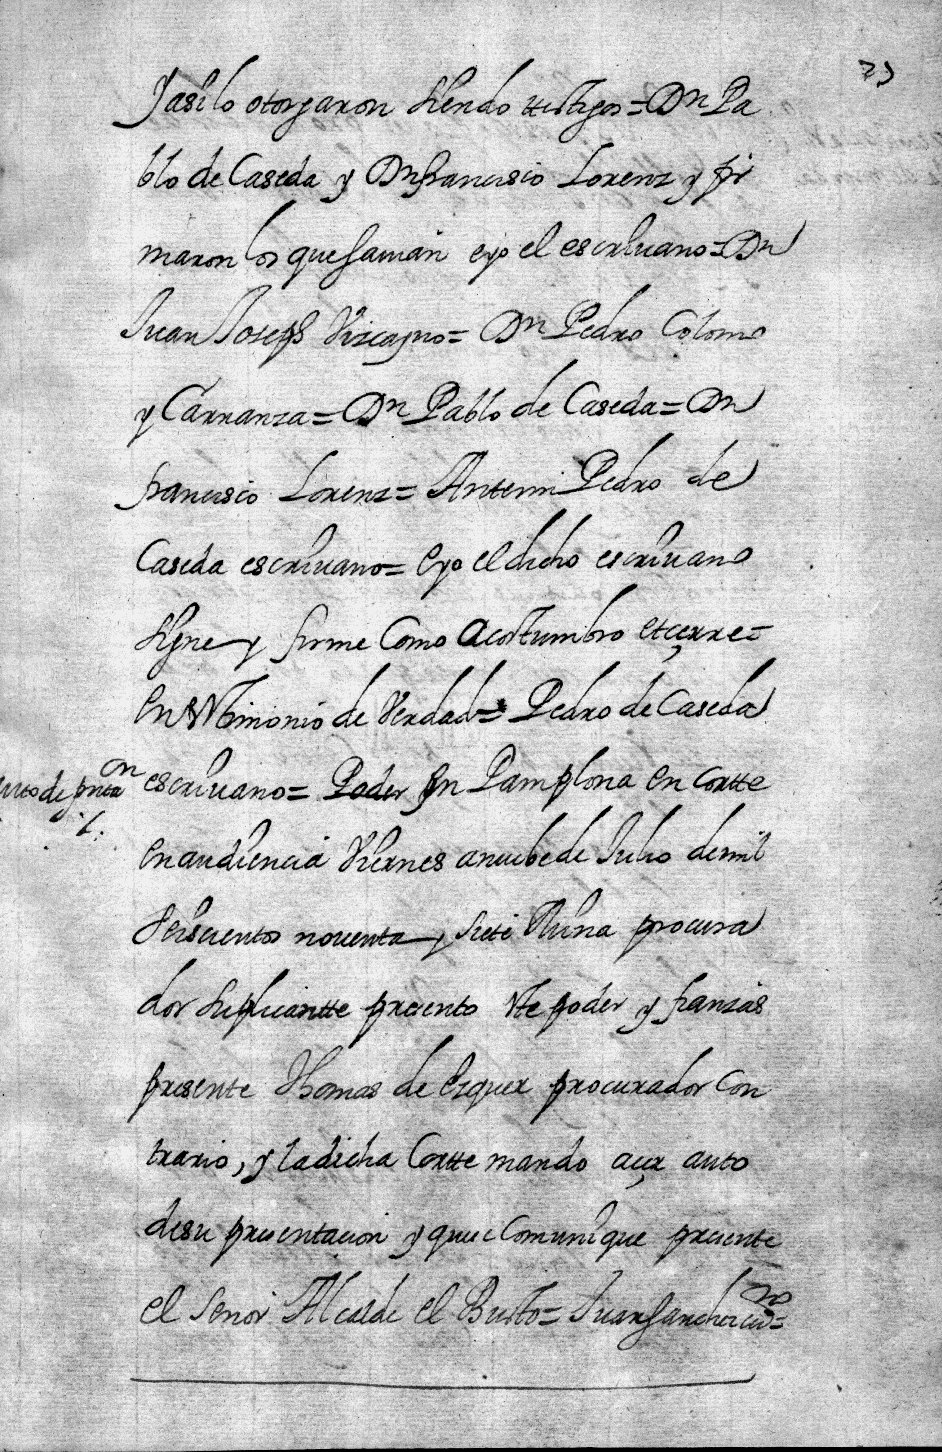 73
Y asi lo otorgaron siendo testigos = Dn Pa
blo de Caseda y Dn francisco Lorenz y fir
maron los que sauian e yo el escriuano = Dn
Juan Joseph Vizcayno = Dn Pedro Colomo
y Carranza = Dn Pablo de Caseda = Dn
francisco Lorenz = Antemi Pedro de
Caseda escriuano = E yo el dicho escriuano
signe y firme Como Acostumbro et çerre =
En testimonio de Verdad = Pedro de Caseda
escriuano = Poder En Pamplona en Cortte
auto de pnta on
En audiencia Viernes a nuebe de Julio de mil
Seiscientos nouenta y siete procura
dor Suplicantte presento este poder y fianzas
presente Thomas de Ezquer procurador Con
trario, y la dicha Cortte mando açer auto
de su presentacion y que se Comunique presente
el Senor Alcalde el Busto = Juan Sanchez no =